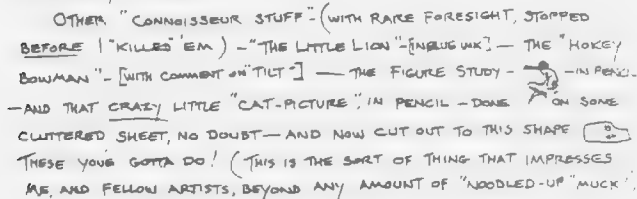 OTHER "CONNOISSEUR STUFF"-(WITH RARE FORESIGHT, STOPPED
BEFORE I "KILLED" 'EM) - "THE LITTLE LION" - [IN BLUE INK] - THE "HOKEY
BOWMAN" - [WITH COMMENT ON "TILT"] - THE FIGURE STUDY - - IN PENCIL -
- AND THAT CRAZY LITTLE "CAT-PICTURE", IN PENCIL - DONE ON SOME
CLUTTERED SHEET, NO DOUBT - AND NOW CUT OUT TO THIS SHAPE
THESE YOUVE GOTTA DO! (THIS IS THE SORT OF THING THAT IMPRESSES
ME, AND FELLOW ARTISTS, BEYOND ANY AMOUNT OF "NOODLED-UP "MUCK".